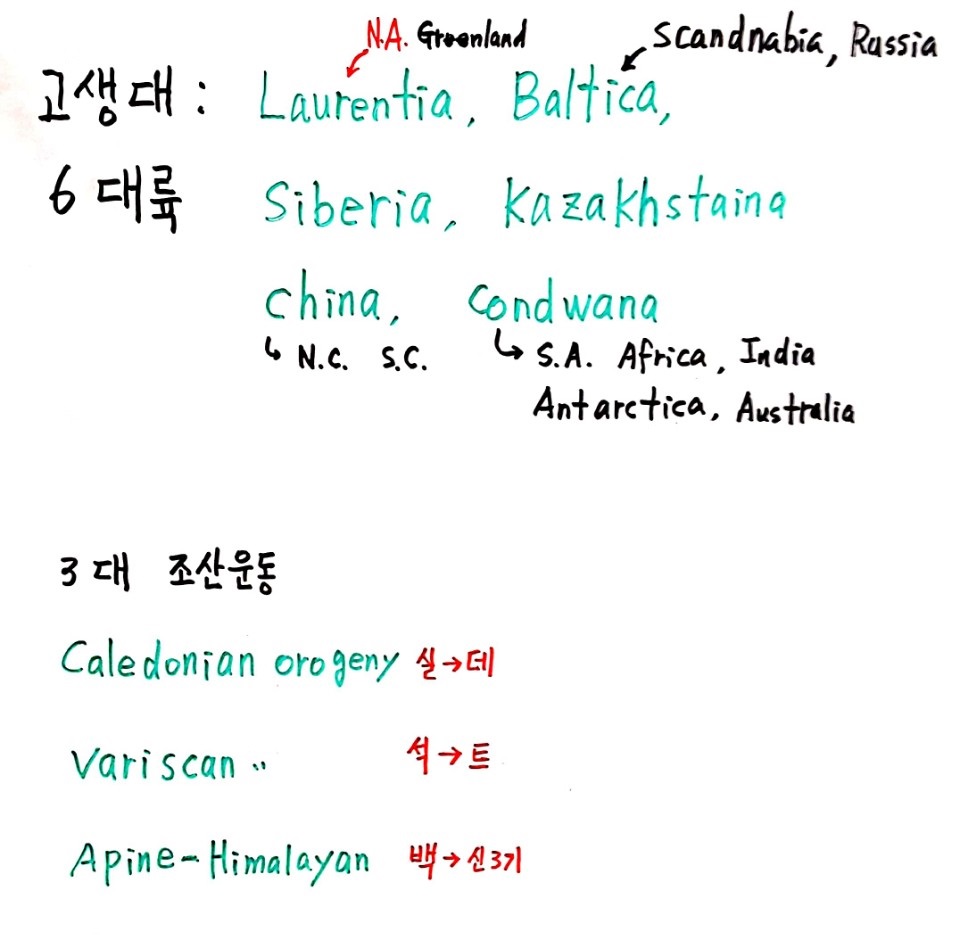 N.A. Greenland Scandnabia, Russia
고생대 : Laurentia, Baltica,
6 대륙 Siberia, Kazakhstaina
China, Condwana
↳ N.C. S.C. ↳ S.A. Africa, India
Antarctica, Australia
3대 조산운동
Caledonian orogeny 실→데
Variscan 〃 석→트
Apine-Himalayan 백→신3기